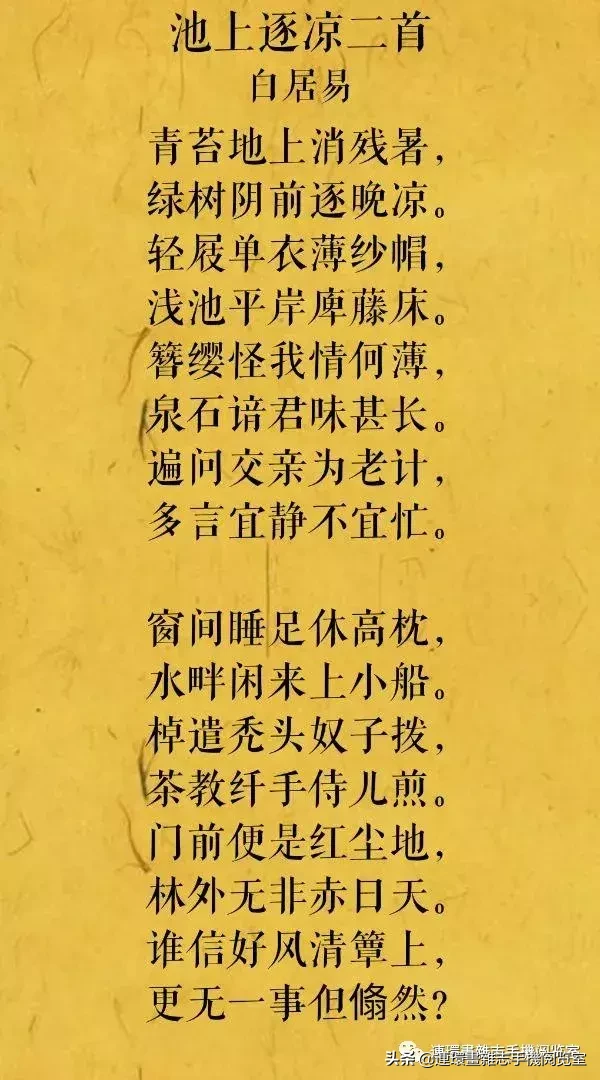 池上逐凉二首
白居易
青苔地上消残暑，
绿树阴前逐晚凉。
轻屐单衣薄纱帽，
浅池平岸庳藤床。
簪缨怪我情何薄，
泉石谙君味甚长。
遍问交亲为老计，
多言宜静不宜忙。
窗间睡足休高枕，
水畔闲来上小船。
棹遣秃头奴子拨，
茶教纤手侍儿煎。
门前便是红尘地，
林外无非赤日天。
谁信好风清簟上，
更无一事但翛然？
連環畫雜志手機阅览室
头条@連環畫雜志手機阅览室